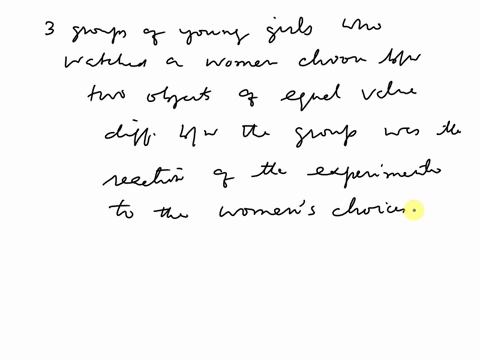 3 groups of young girls who
watched a women choose b/w
two objects of equal value
diff. b/w the groups was the
reaction of the experimente
to the women's choices.